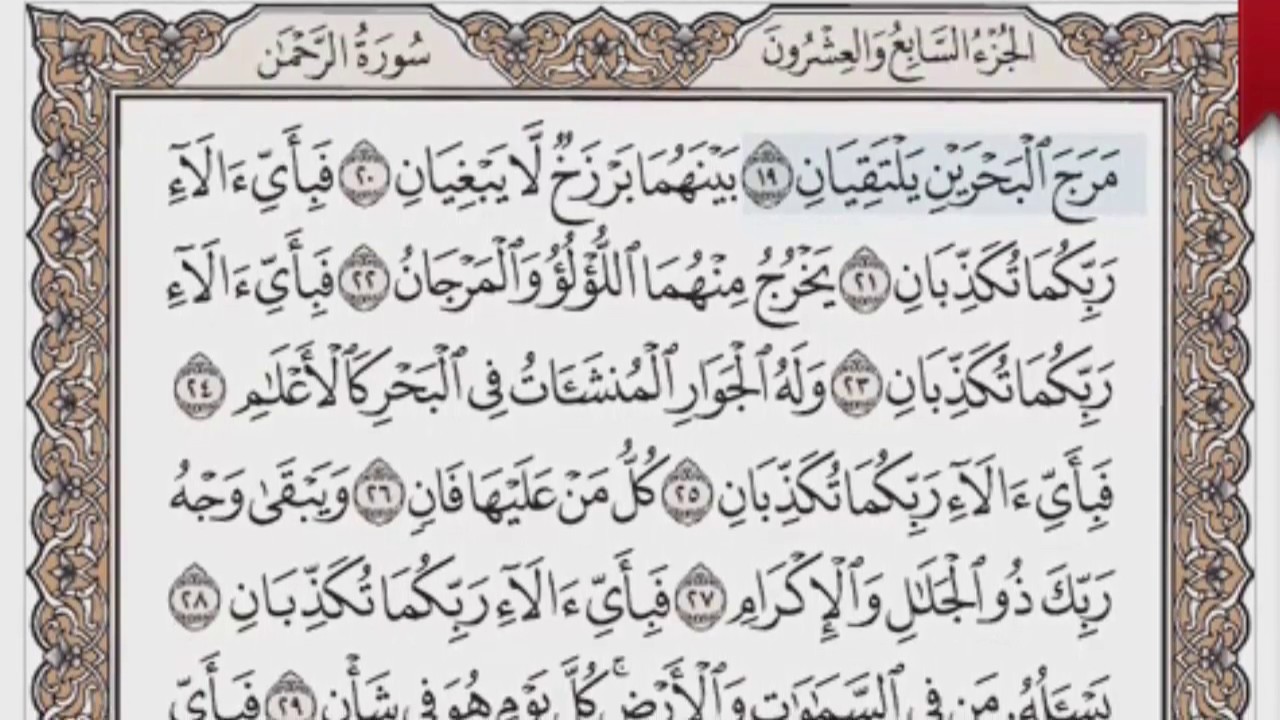 الجزء السابع والعشرون
سورة الرحمن
مَرَجَ ٱلْبَحْرَيْنِ يَلْتَقِيَانِ ١٩ بَيْنَهُمَا بَرْزَخٌ لَّا يَبْغِيَانِ ٢٠ فَبِأَىِّ ءَالَآءِ
رَبِّكُمَا تُكَذِّبَانِ ٢١ يَخْرُجُ مِنْهُمَا ٱللُّؤْلُؤُ وَٱلْمَرْجَانُ ٢٢ فَبِأَىِّ ءَالَآءِ
رَبِّكُمَا تُكَذِّبَانِ ٢٣ وَلَهُ ٱلْجَوَارِ ٱلْمُنشَـَٔاتُ فِى ٱلْبَحْرِ كَٱلْأَعْلَـٰمِ ٢٤
فَبِأَىِّ ءَالَآءِ رَبِّكُمَا تُكَذِّبَانِ ٢٥ كُلُّ مَنْ عَلَيْهَا فَانٍ ٢٦ وَيَبْقَىٰ وَجْهُ
رَبِّكَ ذُو ٱلْجَلَـٰلِ وَٱلْإِكْرَامِ ٢٧ فَبِأَىِّ ءَالَآءِ رَبِّكُمَا تُكَذِّبَانِ ٢٨
يَسْـَٔلُهُۥ مَن فِى ٱلسَّمَـٰوَٰتِ وَٱلْأَرْضِ ۚ كُلَّ يَوْمٍ هُوَ فِى شَأْنٍ ٢٩ فَبِأَىِّ